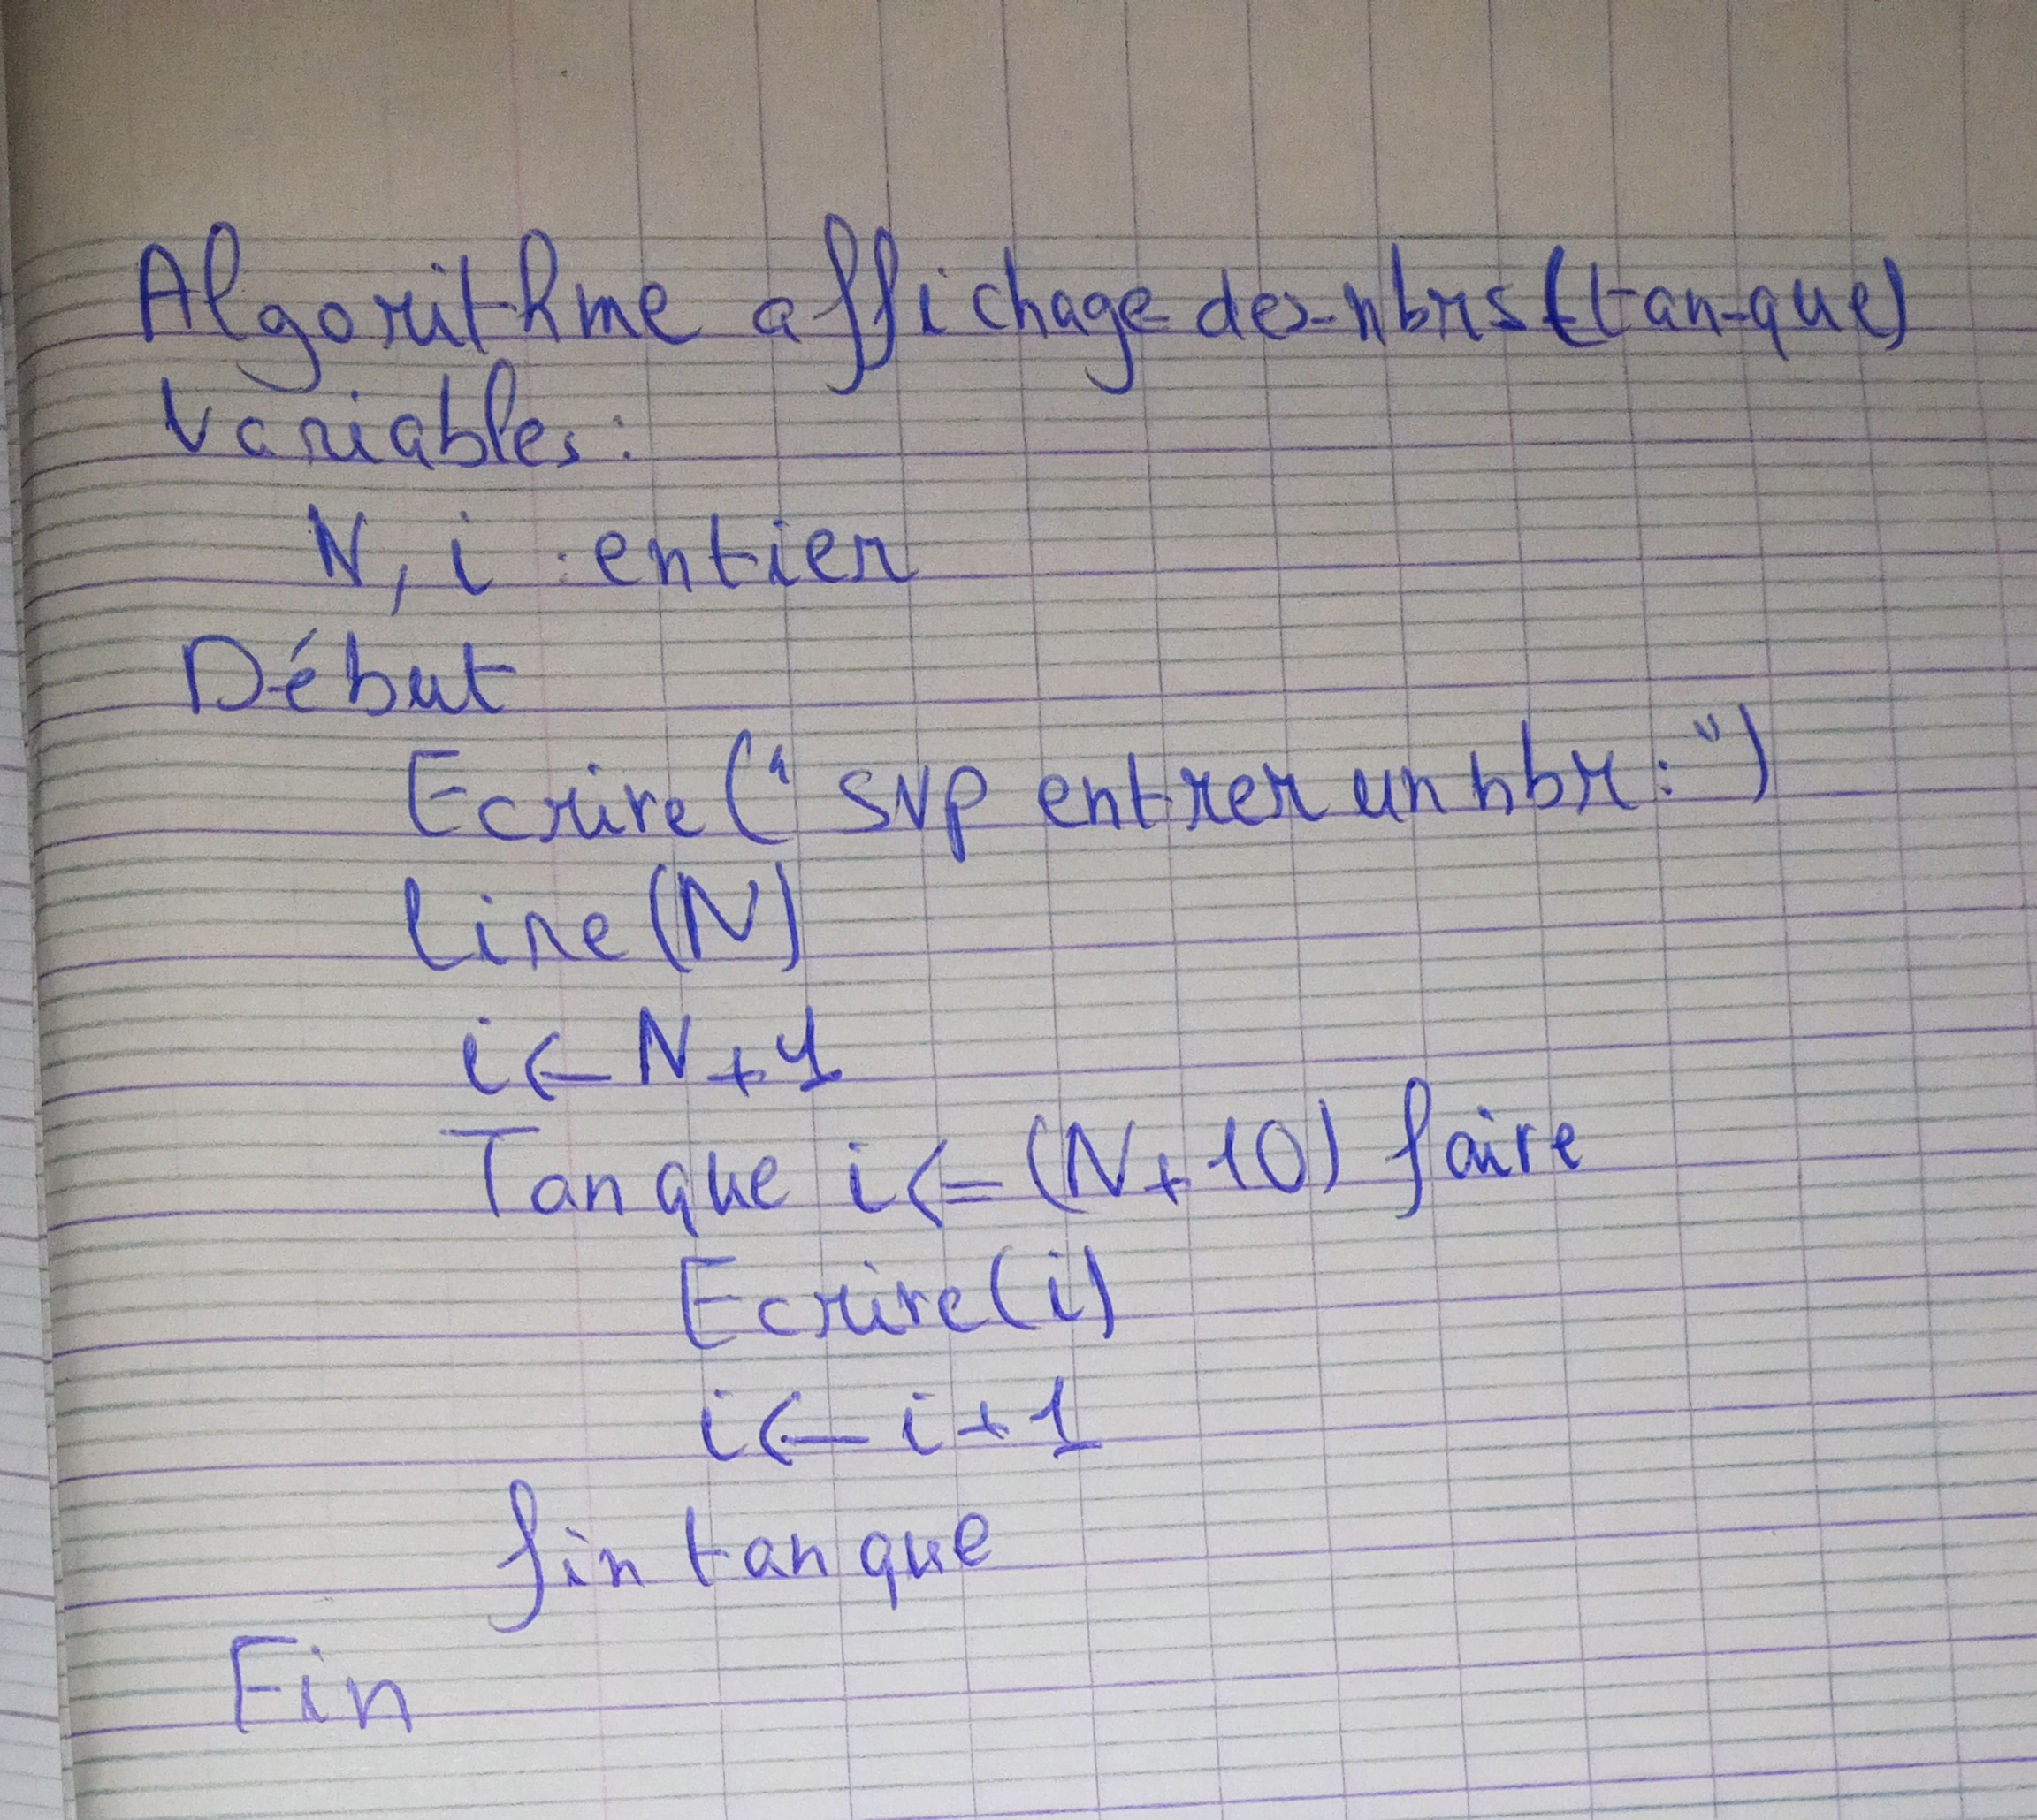 Algorithme affichage-des-nbrs (tan-que)
Variables:
N, i : entier
Début
Ecrire (" svp entrer un nbr : ")
lire (N)
i ← N + 1
Tan que i <= (N + 10) faire
Ecrire (i)
i ← i + 1
fin tan que
Fin